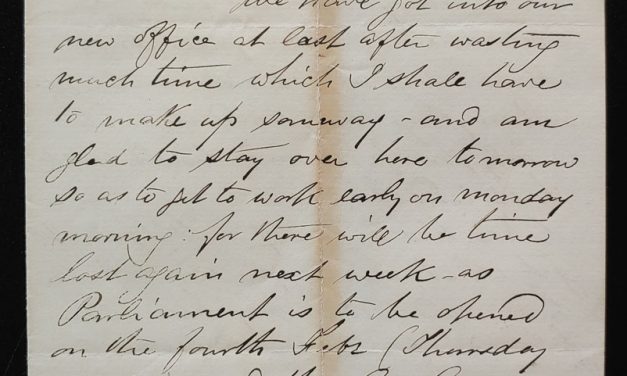 We have got into our
new office at last after wasting
much time which I shall have
to make up someway - and am
glad to stay over here tomorrow
so as to get to work early on monday
morning: for there will be time
lost again next week - as
Parliament is to be opened
on the fourth Feby (Thursday